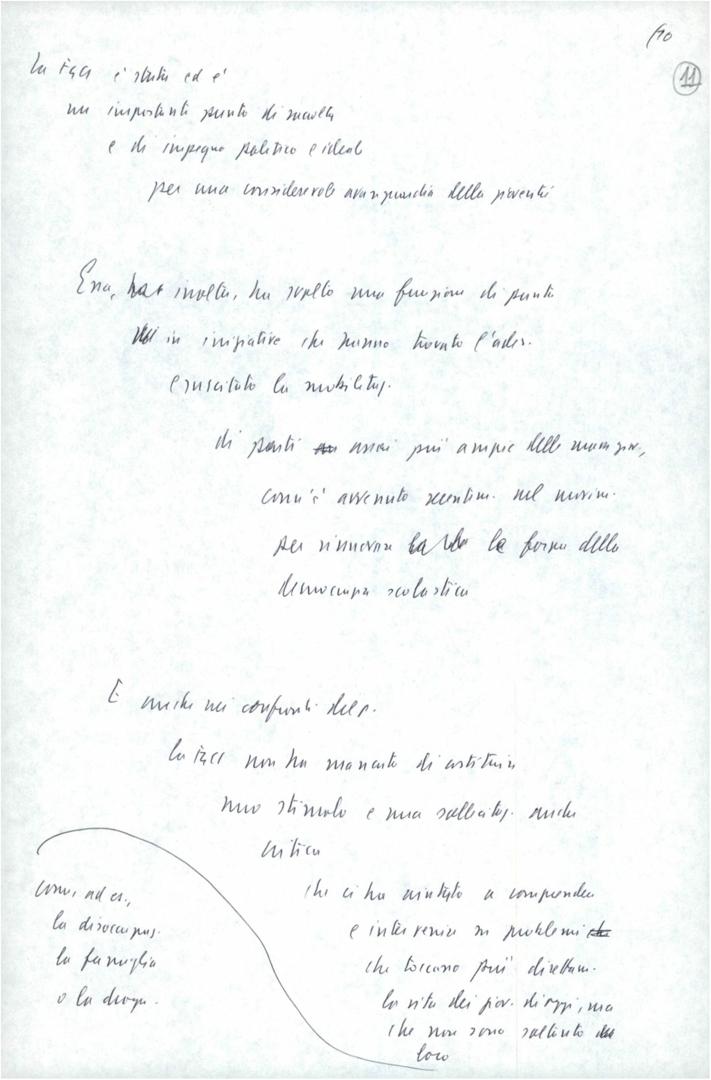 10
11
La FGCI è stata ed è
un importante punto di raccolta
e di impegno politico e ideale
per una considerevole avanguardia della gioventù
Essa, inoltre, ha svolto una funzione di punta
in iniziative che hanno trovato l'ades.
e suscitato la mobilitaz.
di parti assai più ampie delle masse giov.,
com'è avvenuto recentem. nel movim.
per rinnovare le forme della
democrazia scolastica
E anche nei confronti del p.
la FGCI non ha mancato di costituire
uno stimolo e una sollecitaz. anche
critica
che ci ha aiutato a comprendere
e intervenire su problemi
che toccano più direttam.
la vita dei giov. di oggi, ma
che non sono soltanto
loro
come, ad es.,
la disoccupaz.
la famiglia
o la droga.